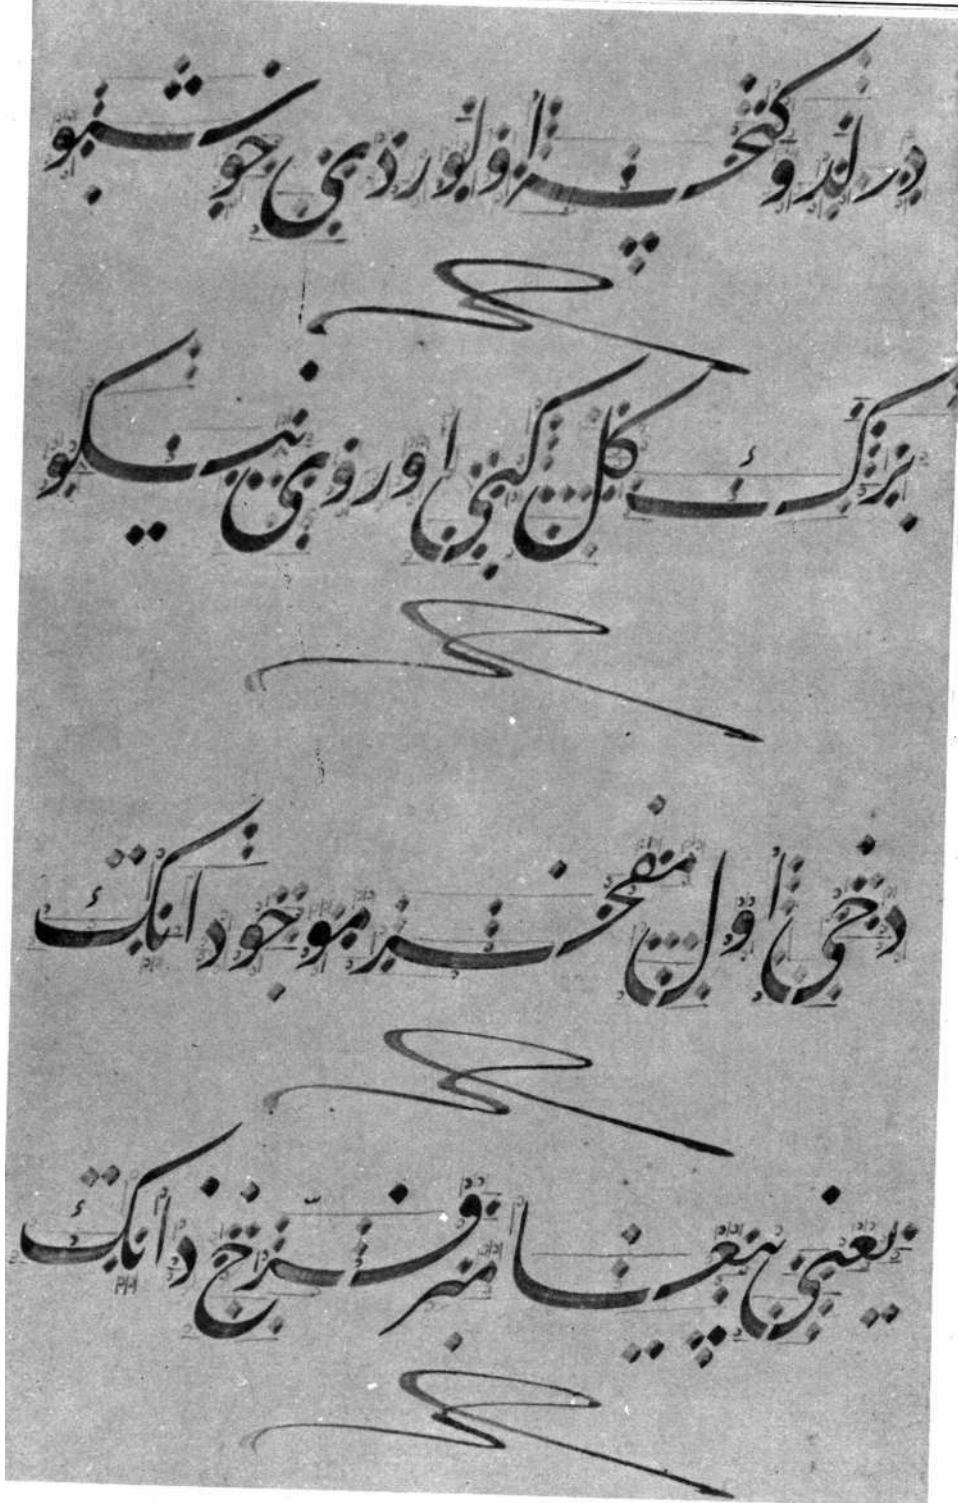 درلدوکجه اولوردی خوشبو
برك گل کبی او روی نیکو
دخی اول مفخر موجوداتك
یعنی پیغامبر فرّخ ذاتك